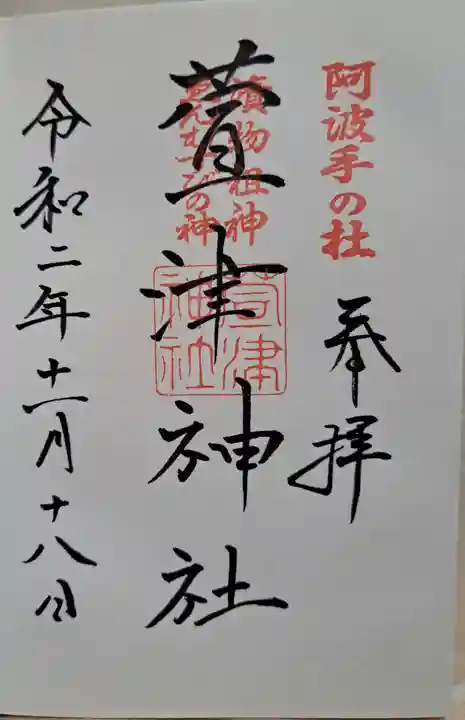 阿波手の杜
奉拝
漬物祖神
縁むすびの神
萱津神社
萱津
神社
令和二年十一月十八日